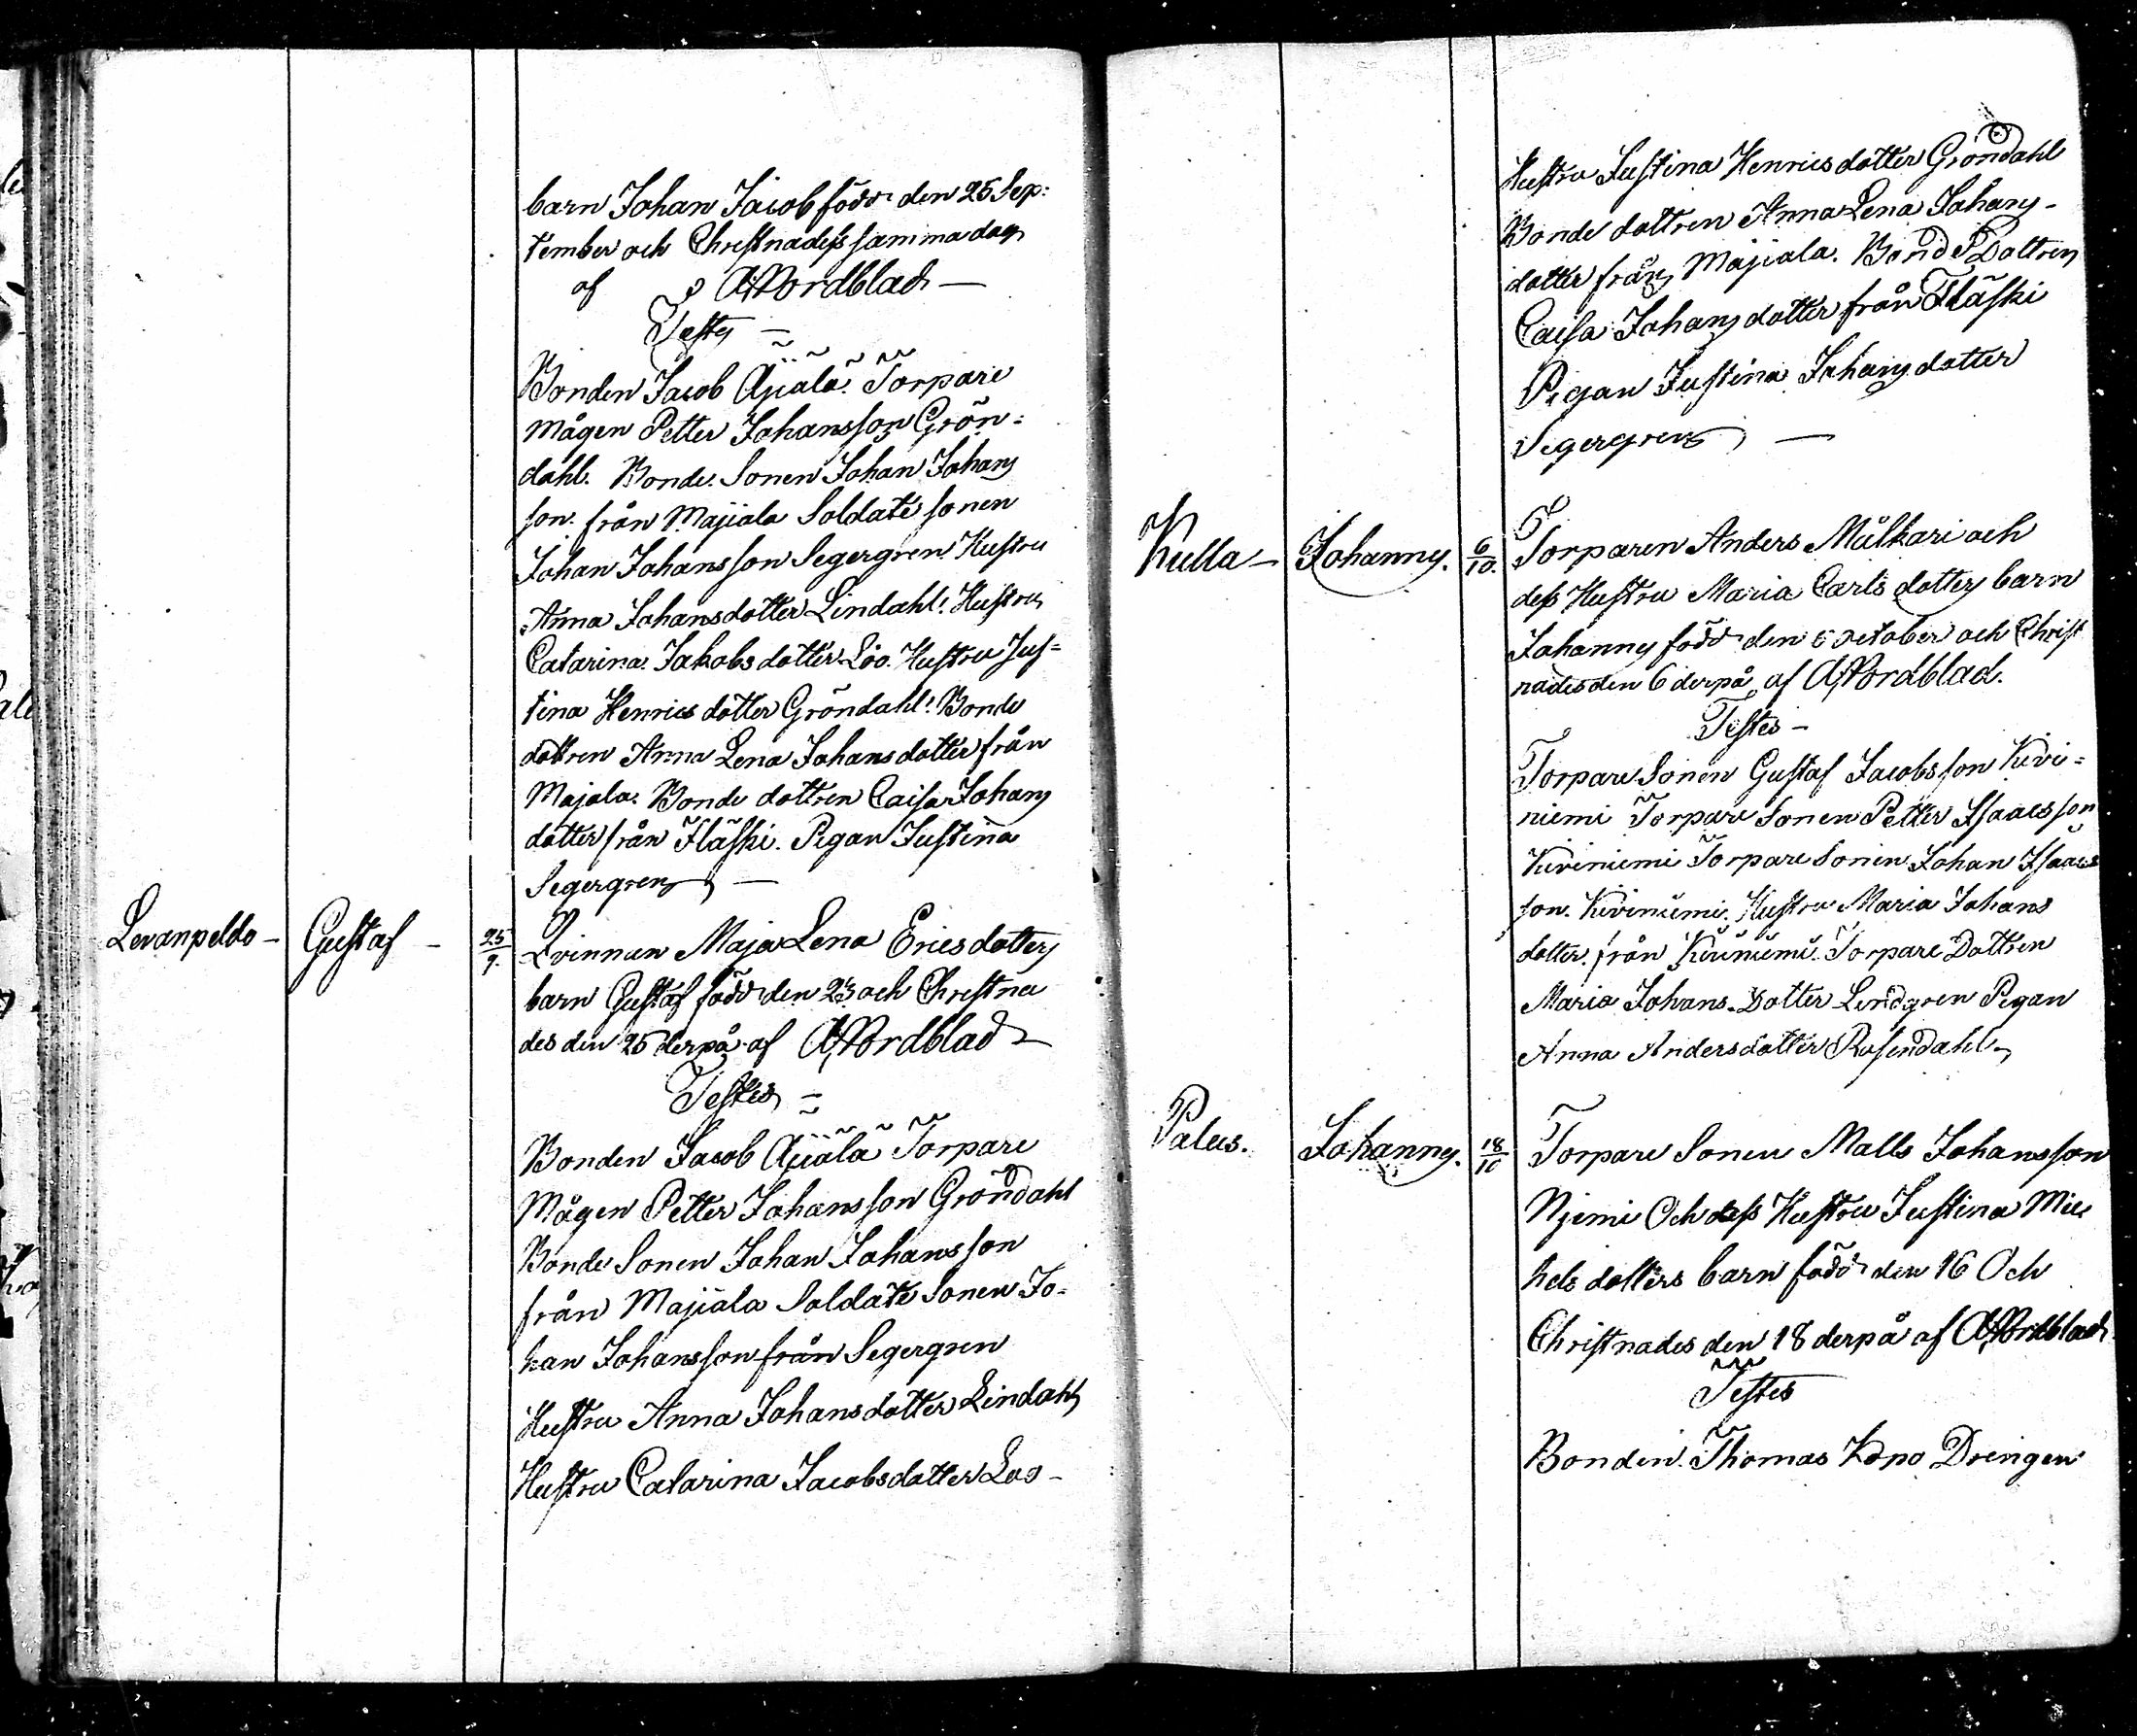 barn Johan Jacob född den 25 Sep:
tember och Christnades samma dag
af A Nordblad —
Testes —
Bonden Jacob Äjälä. Torpare
Mågen Petter Johansson Grön=
dahl. Bonde Sonen Johan Johans
son. från Majiala Soldate sonen
Johan Johansson Segergren Hustru
Anna Johansdotter Lindahl. Hustru
Catarina Jakobs dotter Löo. Hustru Jus=
tina Henrics dotter Gröndahl. Bonde
dottren Anna Lena Johans dotter från
Majala. Bonde dottren Caisa Johans
dotter från Fläski. Pigan Justina
Segergren —
Levanpeldo — Gustaf — 25/9. Qvinnan Maja Lena Erics dotters
barn Gustaf född den 23 och Christna
des den 25 derpå af A Nordblad
Testes —
Bonden Jacob Äjälä Torpare
Mågen Petter Johansson Gröndahl
Bonde Sonen Johan Johansson
från Majiala Soldate Sonen Jo=
han Johansson från Segergren
Hustru Anna Johans dotter Lindahl
Hustru Catarina Jacobsdotter Loo —
Hustru Justina Henrics dotter Gröndahl
Bonde dottren Anna Lena Johans-
dotter från Majiala. Bonde Dottren
Caisa Johans dotter från Fläski
Pigan Justina Johans dotter
Segergren —
Kulla — Johannes. 6/10. Torparen Anders Mälkäri och
dess Hustru Maria Carls dotters barn
Johannes född den october och Christ
nades den 6 derpå af A Nordblad.
Testes —
Torpare Sonen Gustaf Jacobsson Kivi=
niemi Torpare Sonen Petter Isaacsson
Kiviniemi Torpare Sonen Johan Isaacs
son. Kiviniemi. Hustru Maria Johans
dotter. från Kiviniemi. Torpare Dottren
Maria Johans Dotter Lindgren Pigan
Anna Andersdotter Rosendahl
Palus. Johannes. 18/10 Torpare Sonen Malls Johansson
Njemi Och dess Hustru Justina Mic
hels dotters barn född den 16 Och
Christnades den 18 derpå af A Nordblad
Testes
Bonden Thomas Drengen